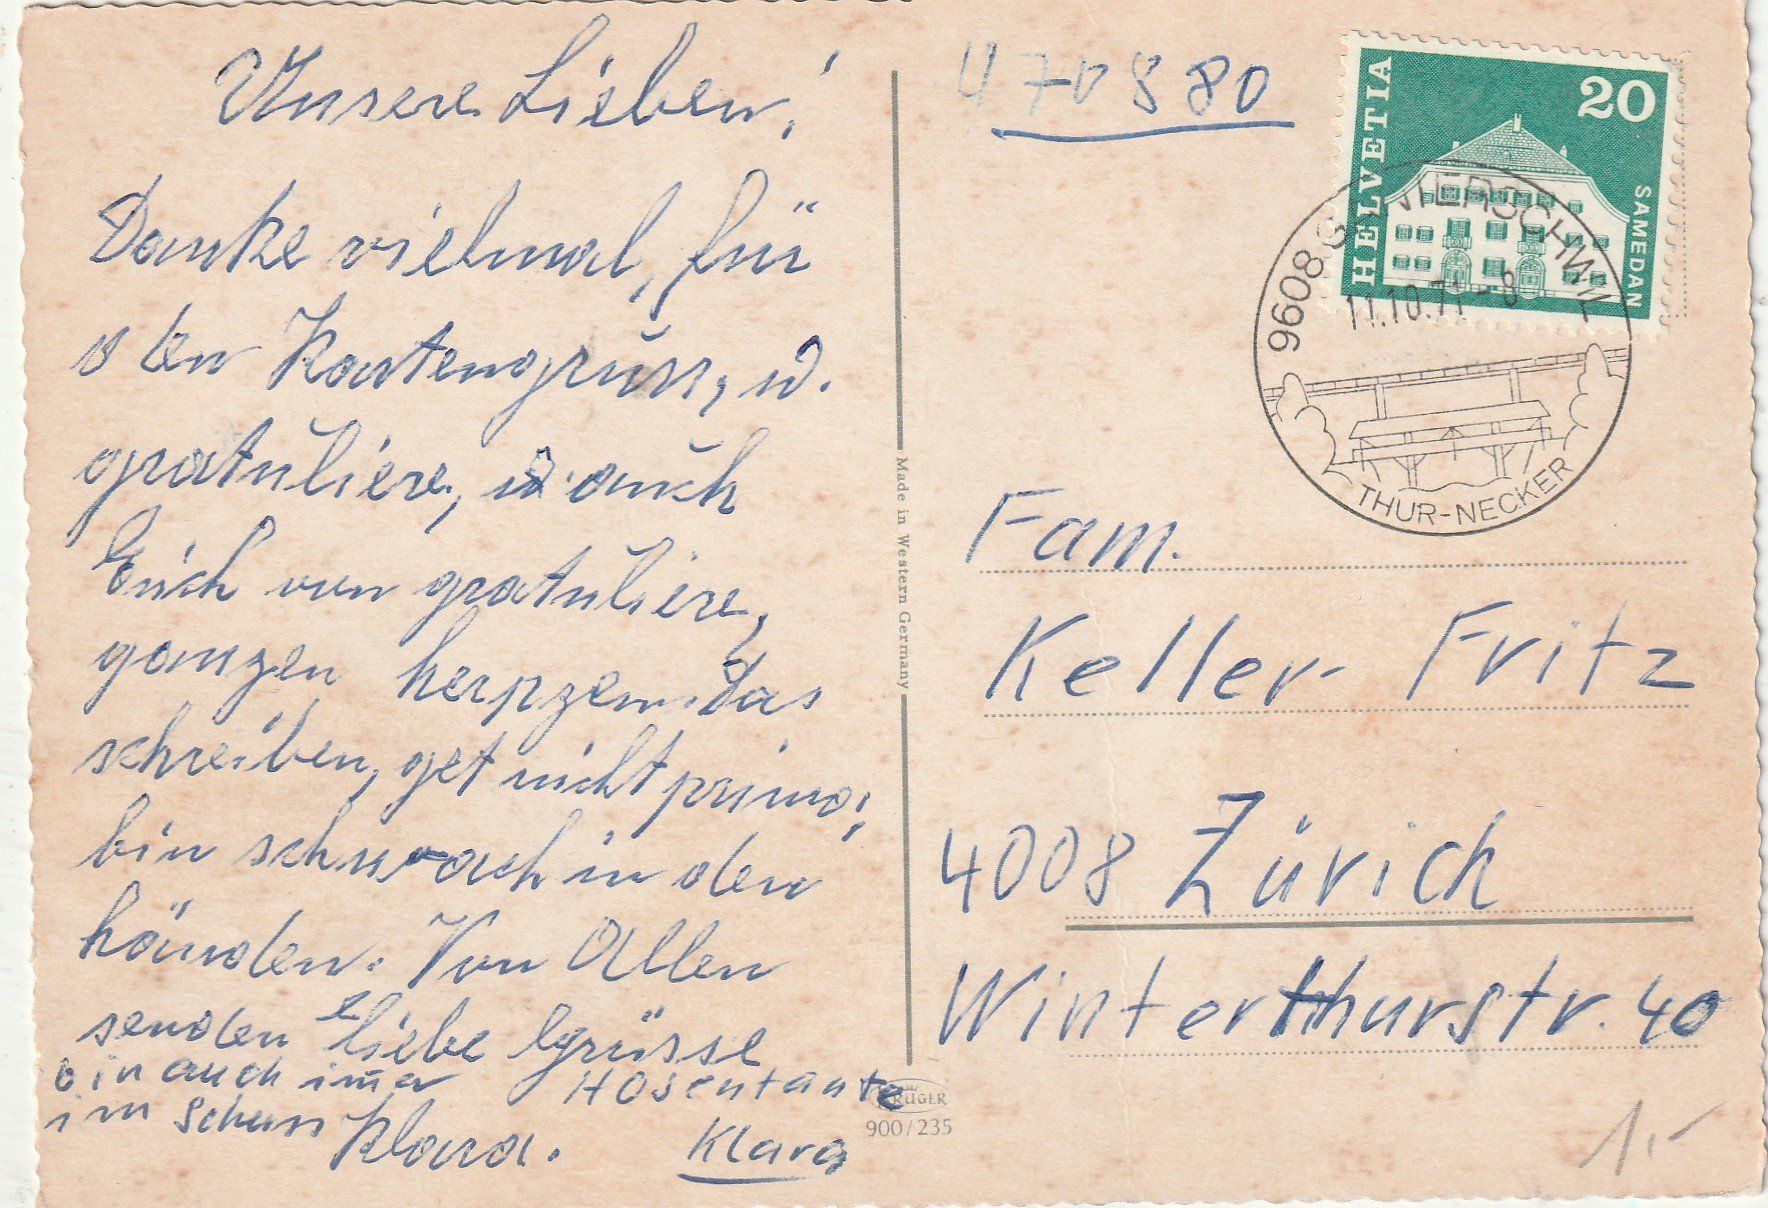 Unsere Lieben!
Danke vielmal, für
den Kartengruss, u.
gratuliere, u. auch
Euch von gratuliere,
ganzen herzen. das
schreiben, get nicht prima,
bin schwach in den
händen. Von Allen
senden liebe Grüsse
bin auch imer Hosentante
im Schuss Klara. Klara
Made in Western Germany
KRÜGER
900/235
470880
HELVETIA
20
SAMEDAN
9608 GANTERSCHWIL
11.10.71-8
THUR-NECKER
Fam.
Keller Fritz
4008 Zürich
Winterthurstr. 40
1.-